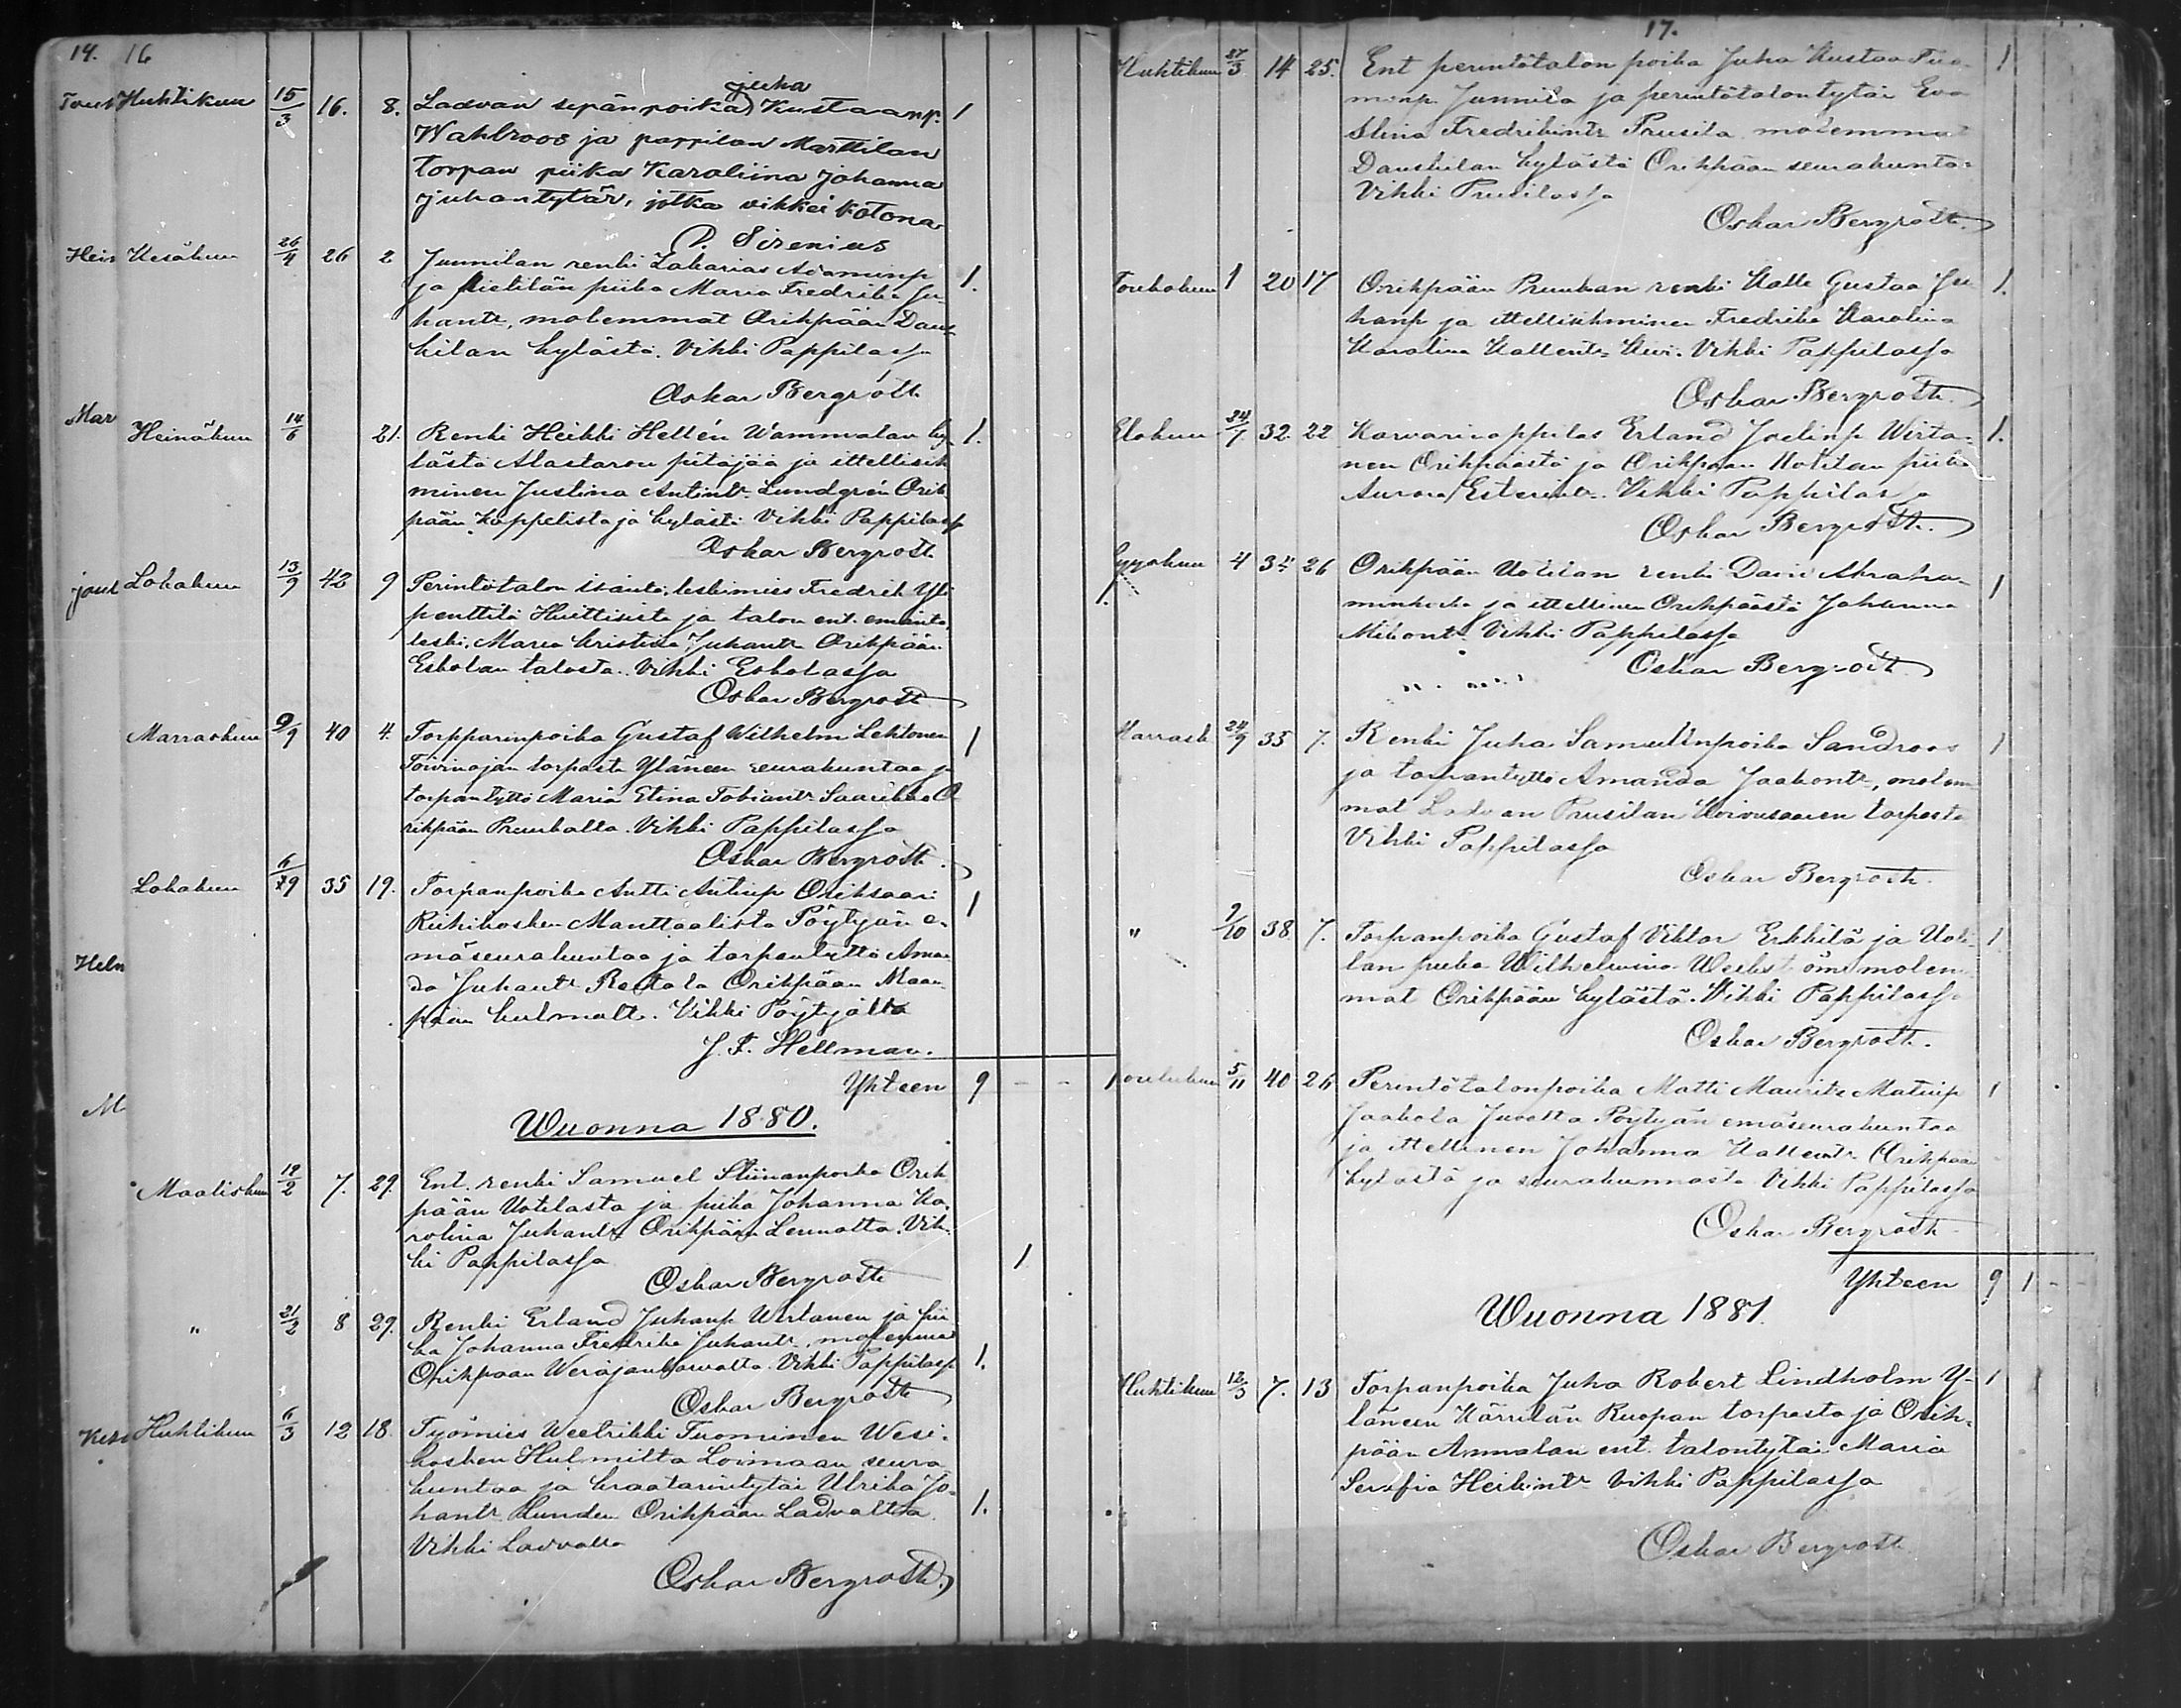 14. 16
Huhtikuu 15/3 16. 8. Ladvan sepänpoika Juha Kustaanp. 1
Wahlroos ja pappilan Marttilan
torpan piika Karoliina Johanna
Juhantytär, jotka vihkei kotona
P. Sirenius
Kesäkuu 26/4 26 2 Junnilan renki Zakarias Adaminp 1.
ja Mietilän piika Maria Fredrika Ju-
hantr, molemmat Orihpään Daus-
kilan kylästä. Vihki Pappilassa
Oskar Bergroth
Heinäkuu 14/6 21. Renki Heikki Hellén Wammalan ky- 1.
lästä Alastaron pitäjää ja ittellisih-
minen Justina Antintr Lundgrén Orih-
pään kappelista ja kylästä Vihki Pappilassa
Oskar Bergroth
Lokakuu 13/9 42 9 Perintötalon isäntä, leskimies Fredrik Yli-
penttilä Huittisista ja talon ent. emäntä,
leski, Maria Kristina Juhantr Orihpään
Eskolan talosta. Vihki Eskolassa
Oskar Bergroth
Marraskuu 9/9 40 4. Torpparinpoika Gustaf Wilhelm Lehtonen 1
Toivinojan torpasta Yläneen seurakuntaa ja
torpantyttö Maria Elina Tobiantr Saarikko O-
rihpään Pruukalla. Vihki Pappilassa
Oskar Bergroth.
Lokakuu 6/9 35 19. Torpanpoika Antti Antinp Orihsaari 1
Riihikosken Manttaalista Pöytyän e-
mäseurakuntaa ja torpantyttö Aman-
da Juhantr Rentola Orihpään Maan-
pään kulmalt. Vihki Pöytyältä
J. F. Hellman.
Yhteen 9 - -
Wuonna 1880.
Maaliskuu 12/2 7. 29. Ent. renki Samuel Stiinanpoika Orih-
pään Uotilasta ja piika Johanna Ka-
rolina Juhantr Orihpään Lennolta. Vih-
ki Pappilassa 1
Oskar Bergroth
" 21/2 8 29. Renki Erland Juhanp Wirtanen ja pii-
ka Johanna Fredrika Juhantr, molemmat
Orihpään Weräjänkorvalta. Vihki Pappilassa 1.
Oskar Bergroth
Huhtikuu 6/3 12 18. Työmies Weetrikki Tuominen Wesi-
kosken Kulmilta Loimaan seura-
kuntaa ja kraatarintytär Ulrika Jo-
hantr Lunden Orihpään Ladvalta 1.
Vihki Ladvalla
Oskar Bergroth
17.
Huhtikuu 27/3 14 25. Ent perintötalon poika Juha Kustaa Tuo- 1
minp. Junnila ja perintötalontytär Eva
Stina Fredrikintr Prusila molemmat
Dauskilan kylästä Orihpään seurakuntaa
Vihki Prusilassa
Oskar Bergroth.
Toukokuu 1 20 17 Orihpään Pruukan renki Kalle Gustaa Ju- 1.
hanp ja ittellisihminen Fredrika Karolina
Karolina Kallentr Kivi. Vihki Pappilassa
Oskar Bergroth.
Elokuu 24/7 32. 22 Karvarinoppilas Erland Joelinp Wirta- 1.
nen Orihpäästä ja Orihpään Uotilan piika
Aurora Esterintr. Vihki Pappilassa
Oskar Bergroth.
Syyskuu 4 34 26 Orihpään Uotilan renki David Abraha- 1
minpoika ja ittellinen Orihpäästä Johanna
Mikontr. Vihki Pappilassa
Oskar Bergroth
Marrask 24/9 35 7. Renki Juha Samuelinpoika Sandroos 1
ja torpantyttö Amanda Jaakontr, molem-
mat Ladvan Prusilan Koivusaaren torpasta
Vihki Pappilassa
Oskar Bergroth.
" 9/10 38. 7. Torpanpoika Gustaf Viktor Erkkilä ja Uoti- 1
lan piika Wilhelmina Weckström molem-
mat Orihpään kylästä. Vihki Pappilassa
Oskar Bergroth.
Joulukuu 5/11 40 26 Perintötalonpoika Matti Maurits Matinp 1
Jaakola Juvalta Pöytyän emäseurakuntaa
ja ittellinen Johanna Kallentr Orihpään
kylästä ja seurakunnasta Vihki Pappilassa
Oskar Bergroth
Yhteen 9 1 - -
Wuonna 1881.
Huhtikuu 12/3 7. 13 Torpanpoika Juha Robert Lindholm Y- 1
läneen Kärrilän Ruopan torpasta ja Orih-
pään Annalan ent. talontytär Maria
Serafia Heikintr Vihki Pappilassa
Oskar Bergroth